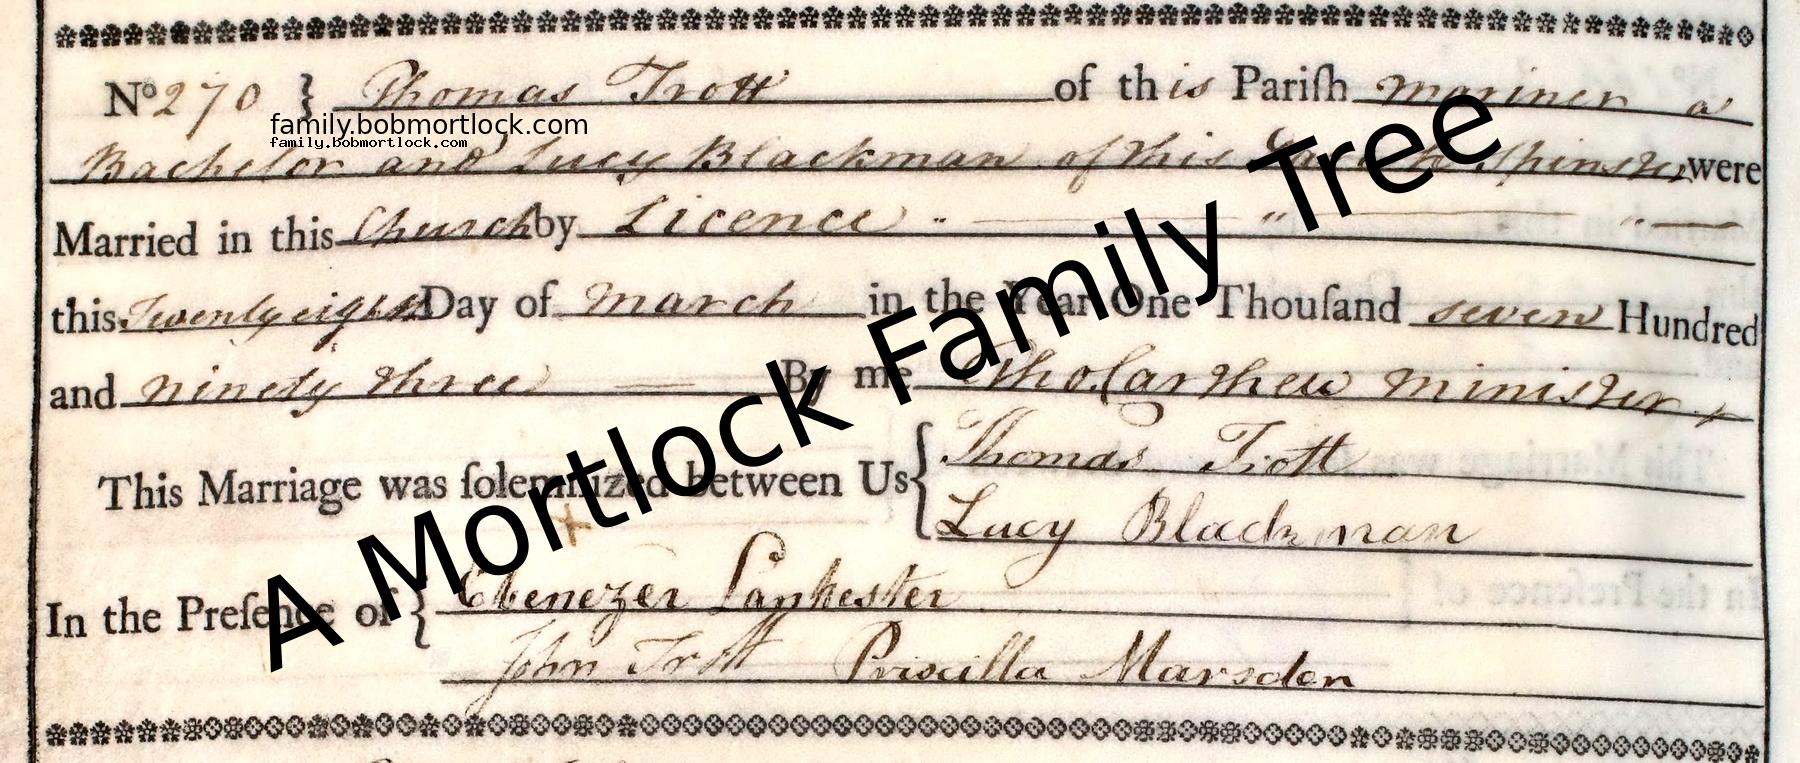 No 270 } Thomas Trott of this Pariſh mariner a
family.bobmortlock.com
family.bobmortlock.com
Bachelor and Lucy Blackman of this Parish Spinster were
Married in this Church by Licence " " "
this Twenty eighth Day of March in the Year One Thouſand seven Hundred
and ninety three By me Tho. Carthew Minister
This Marriage was ſolemnized between Us { Thomas Trott
Lucy Blackman
In the Preſence of { Ebenezer Lankester
John Trott Priscilla Marsden
A Mortlock Family Tree